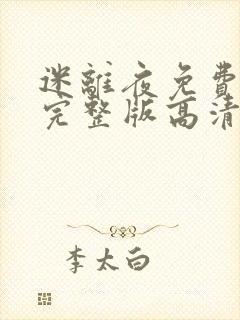 迷離夜免費
完整版高清
李太白